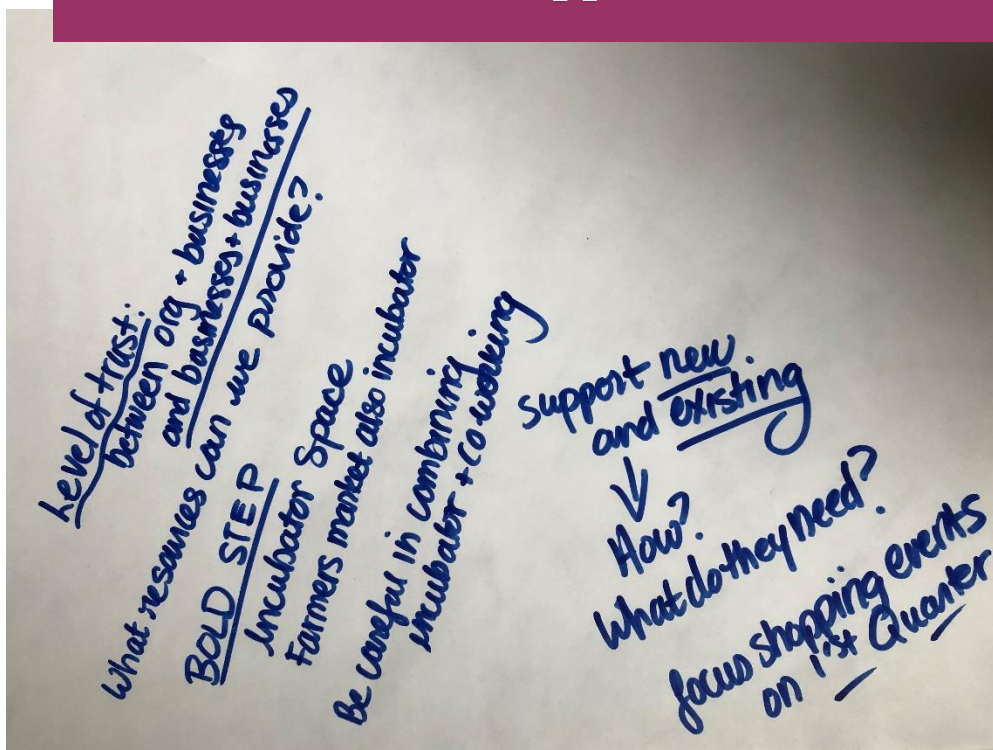 Level of trust:
between org + businesses
and businesses + businesses
What resources can we provide?
BOLD STEP
Incubator Space
Farmers market also incubator
Be careful in combining
incubator + co working
support new
and existing
How?
What do they need?
focus shopping events
on 1st Quarter